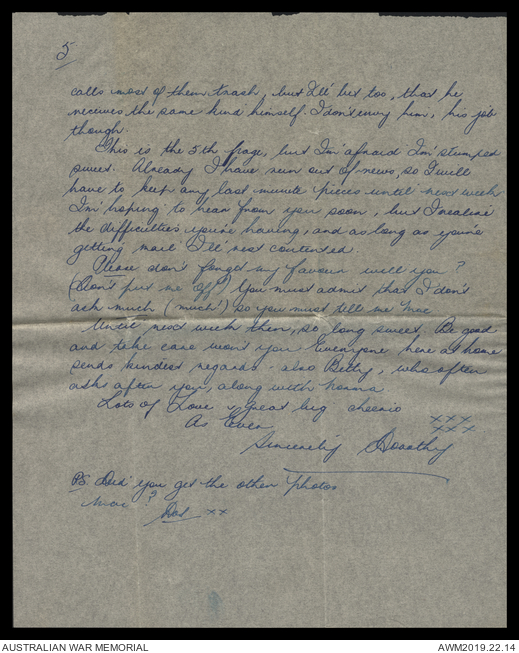 5
calls most of them trash, but I'll bet too, that he
receives the same kind himself. I don't envy him, his job
though.
This is the 5th page, but I'm afraid I'm stumped
sweet. Already I have run out of news, so I will
have to keep any last minute pieces until next week
I'm hoping to hear from you soon, but I realise
the difficulties you're having, and as long as you're
getting mail I'll rest contented.
Please don't forget my favour will you?
(Don't put me off) You must admit that I don't
ask much (much!) so you must tell me Mac
Until next week then, so long sweet. Be good
and take care won't you. Everyone here at home
sends kindest regards - also Betty, who often
asks after you, along with Norma
Lots of Love & great big cheerio
xxx
As Ever
xxx
Sincerely Dorothy
PS. Did you get the other photos
Mac?
Dot xx
AUSTRALIAN WAR MEMORIAL
AWM2019.22.14